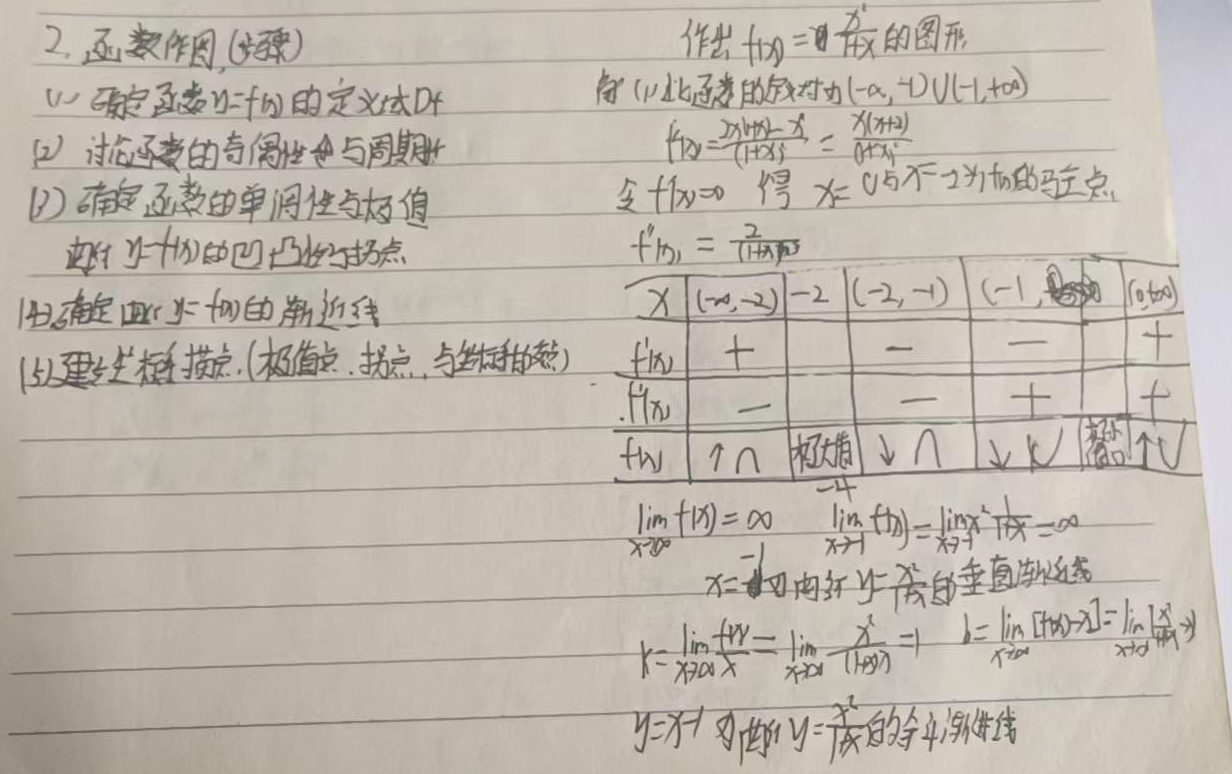 2. 函数作图(步骤)
(1) 确定函数y=f(x)的定义域Df
(2) 讨论函数的奇偶性与周期性
(3) 确定函数的单调性与极值
曲线 y=f(x)的凹凸性与拐点
(4) 确定曲线y=f(x)的渐近线
(5) 建立坐标系描点.(极值点.拐点.与坐标轴的交点)
作出 f(x)=x²/1+x 的图形
解(1)此函数的定义域为(-∞,-1)∪(-1,+∞)
f'(x)=2x(1+x)-x²/(1+x)²=x(x+2)/(1+x)²
令f'(x)=0 得 x=0与x=-2为f(x)的驻点.
f''(x)=2/(1+x)³
x (-∞,-2) -2 (-2,-1) (-1, (0,+∞)
f'(x) + − − +
f''(x) − − + +
f(x) ↑∩ 极大值 -4 ↓∩ ↓∪ 极小值0 ↑∪
lim x→∞ f(x)=∞ lim x→-1 f(x)=lim x→-1 x² 1/1+x=∞
x=-1为曲线y=x²/1+x的垂直渐近线
k=lim x→∞ f(x)/x=lim x→∞ x²/(1+x)x=1 b=lim x→∞ [f(x)-x]=lim x→∞ [x²/1+x-x]
y=x-1为曲线y=x²/1+x的斜渐近线